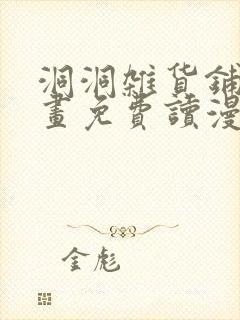 洞洞雜貨鋪
畫免費讀漫
金彪